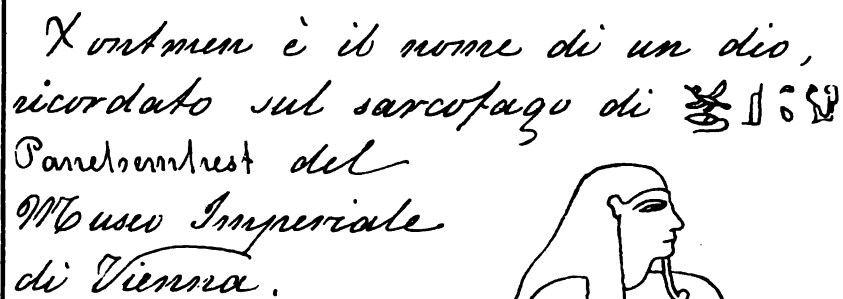 Xontmen è il nome di un dio,
ricordato sul sarcofago di
Panehsemtrest del
Museo Imperiale
di Vienna.